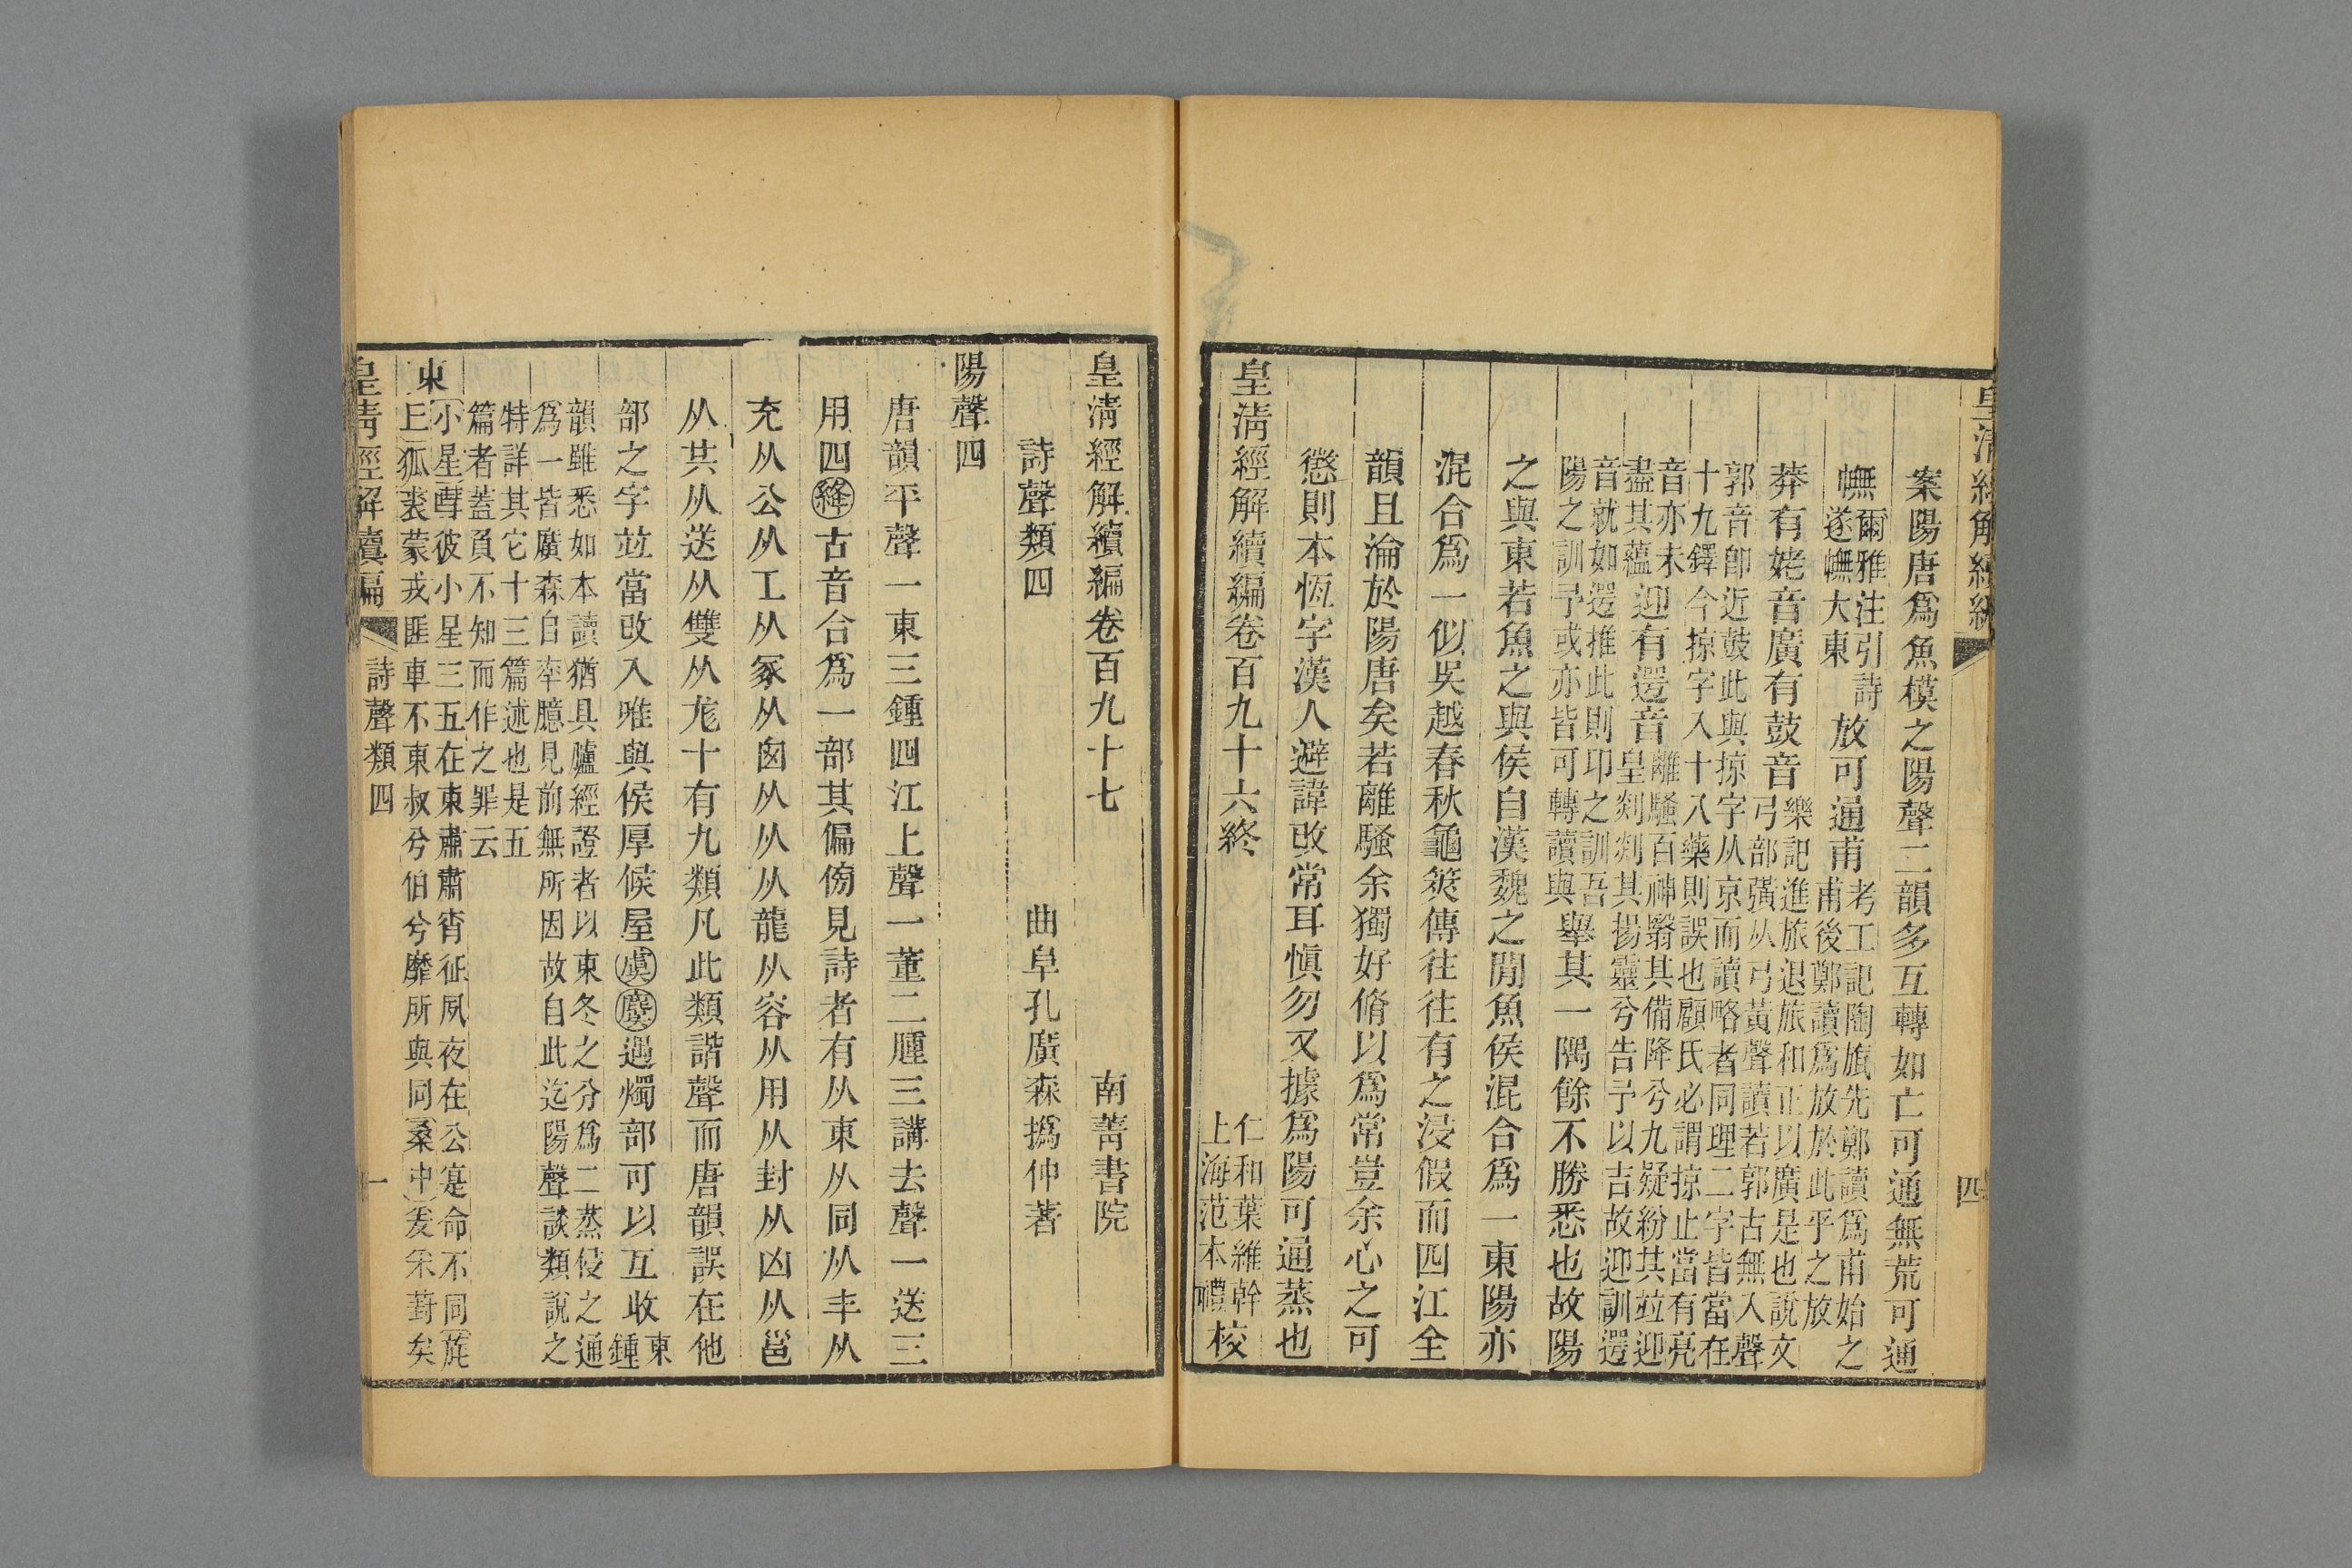 皇清經解續編
四
案陽唐爲魚模之陽聲二韻多互轉如亡可通無荒可通
幠爾雅注引詩遂幠大東放可通甫考工記陶旊先鄭讀爲甫始之甫後鄭讀爲放於此乎之放
莽有姥音廣有鼓音樂記進旅退旅和正以廣是也說文弓部彉从弓黃聲讀若郭古無入聲
郭音卽近鼓此與掠字从京而讀略者同理二字皆當在十九鐸今掠字入十八藥則誤也顧氏必謂掠止當有亮
音亦未盡其蘊迎有遌音離騷百神翳其備降兮九疑紛其竝迎皇剡剡其揚靈兮告予以吉故迎訓遌
音就如遌推此則卬之訓吾陽之訓予或亦皆可轉讀與舉其一隅餘不勝悉也故陽
之與東若魚之與侯自漢魏之閒魚侯混合爲一東陽亦
混合爲一似吳越春秋龜筴傳往往有之浸假而四江全
韻且淪於陽唐矣若離騷余獨好脩以爲常豈余心之可
懲則本恆字漢人避諱改常耳愼勿又據爲陽可通蒸也
皇清經解續編卷百九十六終
仁和葉維幹
上海范本禮校
皇清經解續編卷百九十七
南菁書院
詩聲類四
曲阜孔廣森撝仲著
陽聲四
唐韻平聲一東三鍾四江上聲一董二腫三講去聲一送三
用四絳古音合爲一部其偏傍見詩者有从東从同从丰从
充从公从工从冡从囪从从从龍从容从用从封从凶从邕
从共从送从雙从尨十有九類凡此類諧聲而唐韻誤在他
部之字竝當改入唯與侯厚候屋虞麌遇燭部可以互收東鍾
韻雖悉如本讀猶具臚經證者以東冬之分爲二蒸侵之通
爲一皆廣森自率臆見前無所因故自此迄陽聲談類說之
特詳其它十三篇述也是五
篇者蓋負不知而作之罪云
東小星嘒彼小星三五在東肅肅宵征夙夜在公寔命不同旄
丘狐裘蒙戎匪車不東叔兮伯兮靡所與同桑中爰采葑矣
皇清經解續編
詩聲類四
一